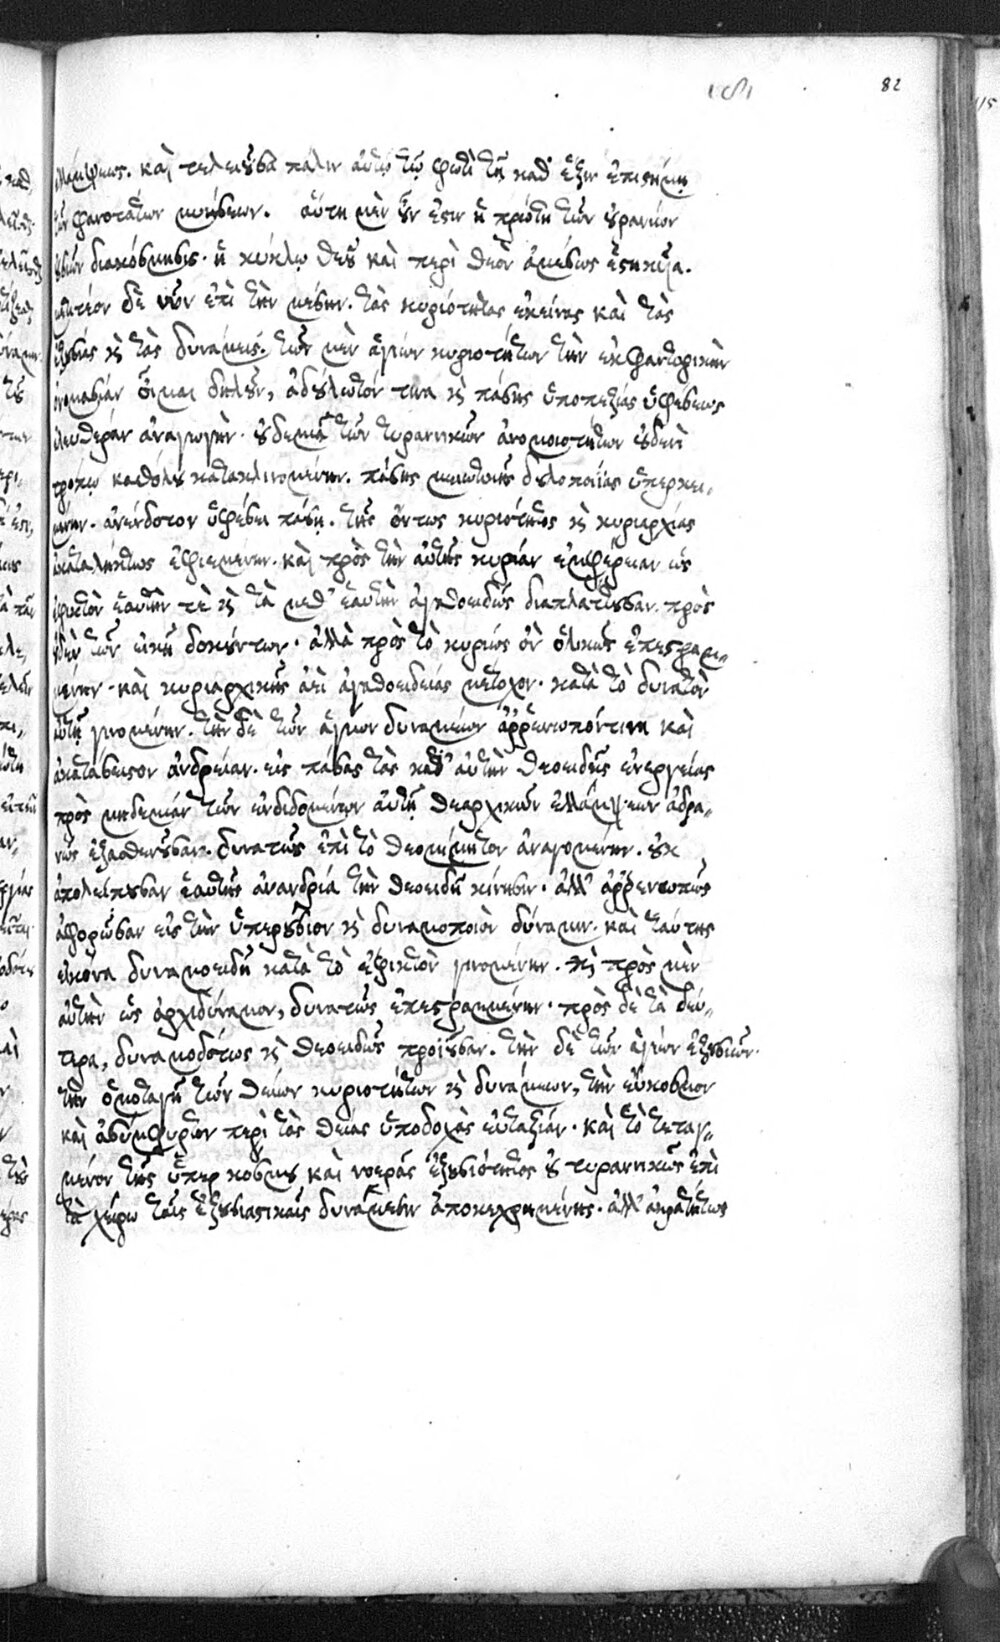 82
ἐλλάμψεως. καὶ τελειοῦσα πάλιν αὐτῷ τῷ φωτὶ τῇ καθ' ἕξιν ἐπιστήμῃ
τῶν φανοτάτων μυήσεων. αὕτη μὲν οὖν ἐστιν ἡ πρώτη τῶν οὐρανίων
οὐσιῶν διακόσμησις. ἡ κύκλῳ θεοῦ καὶ περὶ θεὸν ἀμέσως ἑστηκυῖα.
μετιτέον δὲ νῦν ἐπὶ τὴν μέσην. τὰς κυριότητας ἐκείνας καὶ τὰς
ἐξουσίας κὶ τὰς δυνάμεις. τῶν μὲν ἁγίων κυριοτήτων τὴν ἐκφαντορικὴν
ὀνομασίαν οἶμαι δηλοῦν, ἀδούλωτόν τινα κὶ πάσης ὑποπεζίας ὑφέσεως
ἐλευθέραν ἀναγωγὴν. οὐδεμιᾷ τῶν τυραννικῶν ἀνομοιοτήτων οὐδενὶ
τρόπῳ καθόλου κατακλινομένην. πάσης μειωτικῆς δουλοποιΐας ὑπερκει,
μένην. ἀνένδοτον ὑφέσει πάσῃ. τῆς ὄντως κυριότητος κὶ κυριαρχίας
ἀκαταλήκτως ἐφιεμένην. καὶ πρὸς τὴν αὐτῆς κυρίαν ἐμφέρειαν ὡς
ἐφικτὸν ἑαυτήν τε κὶ τὰ μεθ' ἑαυτὴν ἀγαθοειδῶς διαπλάττουσαν. πρὸς
οὐδὲν τῶν εἰκῇ δοκούντων. ἀλλὰ πρὸς τὸ κυρίως ὂν ὁλικῶς ἐπεστραμ,
μένην. καὶ κυριαρχικῆς ἀεὶ ἀγαθοειδείας μέτοχον. κατὰ τὸ δυνατὸν
αὐτῇ γινομένην. τὴν δὲ τῶν ἁγίων δυνάμεων ἀρρενωπόν τινα καὶ
ἀκατάσειστον ἀνδρείαν. εἰς πάσας τὰς καθ' αὑτὴν θεοειδεῖς ἐνεργείας
πρὸς μηδεμίαν τῶν ἐνδιδομένων αὐτῇ θεαρχικῶν ἐλλάμψεων ἀδρα,
νῶς ἐξασθενοῦσαν. δυνατῶς ἐπὶ τὸ θεομίμητον ἀναγομένην. οὐκ
ἀπολείπουσαν ἑαυτῆς ἀνανδρίᾳ τὴν θεοειδῆ κίνησιν. ἀλλ' ἀρρενωπῶς
ἀφορῶσαν εἰς τὴν ὑπερούσιον κὶ δυναμοποιὸν δύναμιν. καὶ ταύτης
εἰκόνα δυναμοειδῆ κατὰ τὸ ἐφικτὸν γινομένην. κὶ πρὸς μὲν
αὐτὴν ὡς ἀρχιδύναμον, δυνατῶς ἐπεστραμμένην. πρὸς δὲ τὰ δεύ,
τερα, δυναμοδότως κὶ θεοειδῶς προϊοῦσαν. τὴν δὲ τῶν ἁγίων ἐξουσιῶν.
τὴν ὁμοταγῆ τῶν θείων κυριοτήτων κὶ δυνάμεων, τὴν εὔκοσμον
καὶ ἀσύμφυρτον περὶ τὰς θείας ὑποδοχὰς εὐταξίαν. καὶ τὸ τεταγ,
μένον τῆς ὑπερκοσμίου καὶ νοερᾶς ἐξουσιότητος οὐ τυραννικῶς ἐπὶ
τὰ χείρω ταῖς ἐξουσιαστικαῖς δυνάμεσιν ἀποκεχρημένης. ἀλλ' ἀκρατήτως